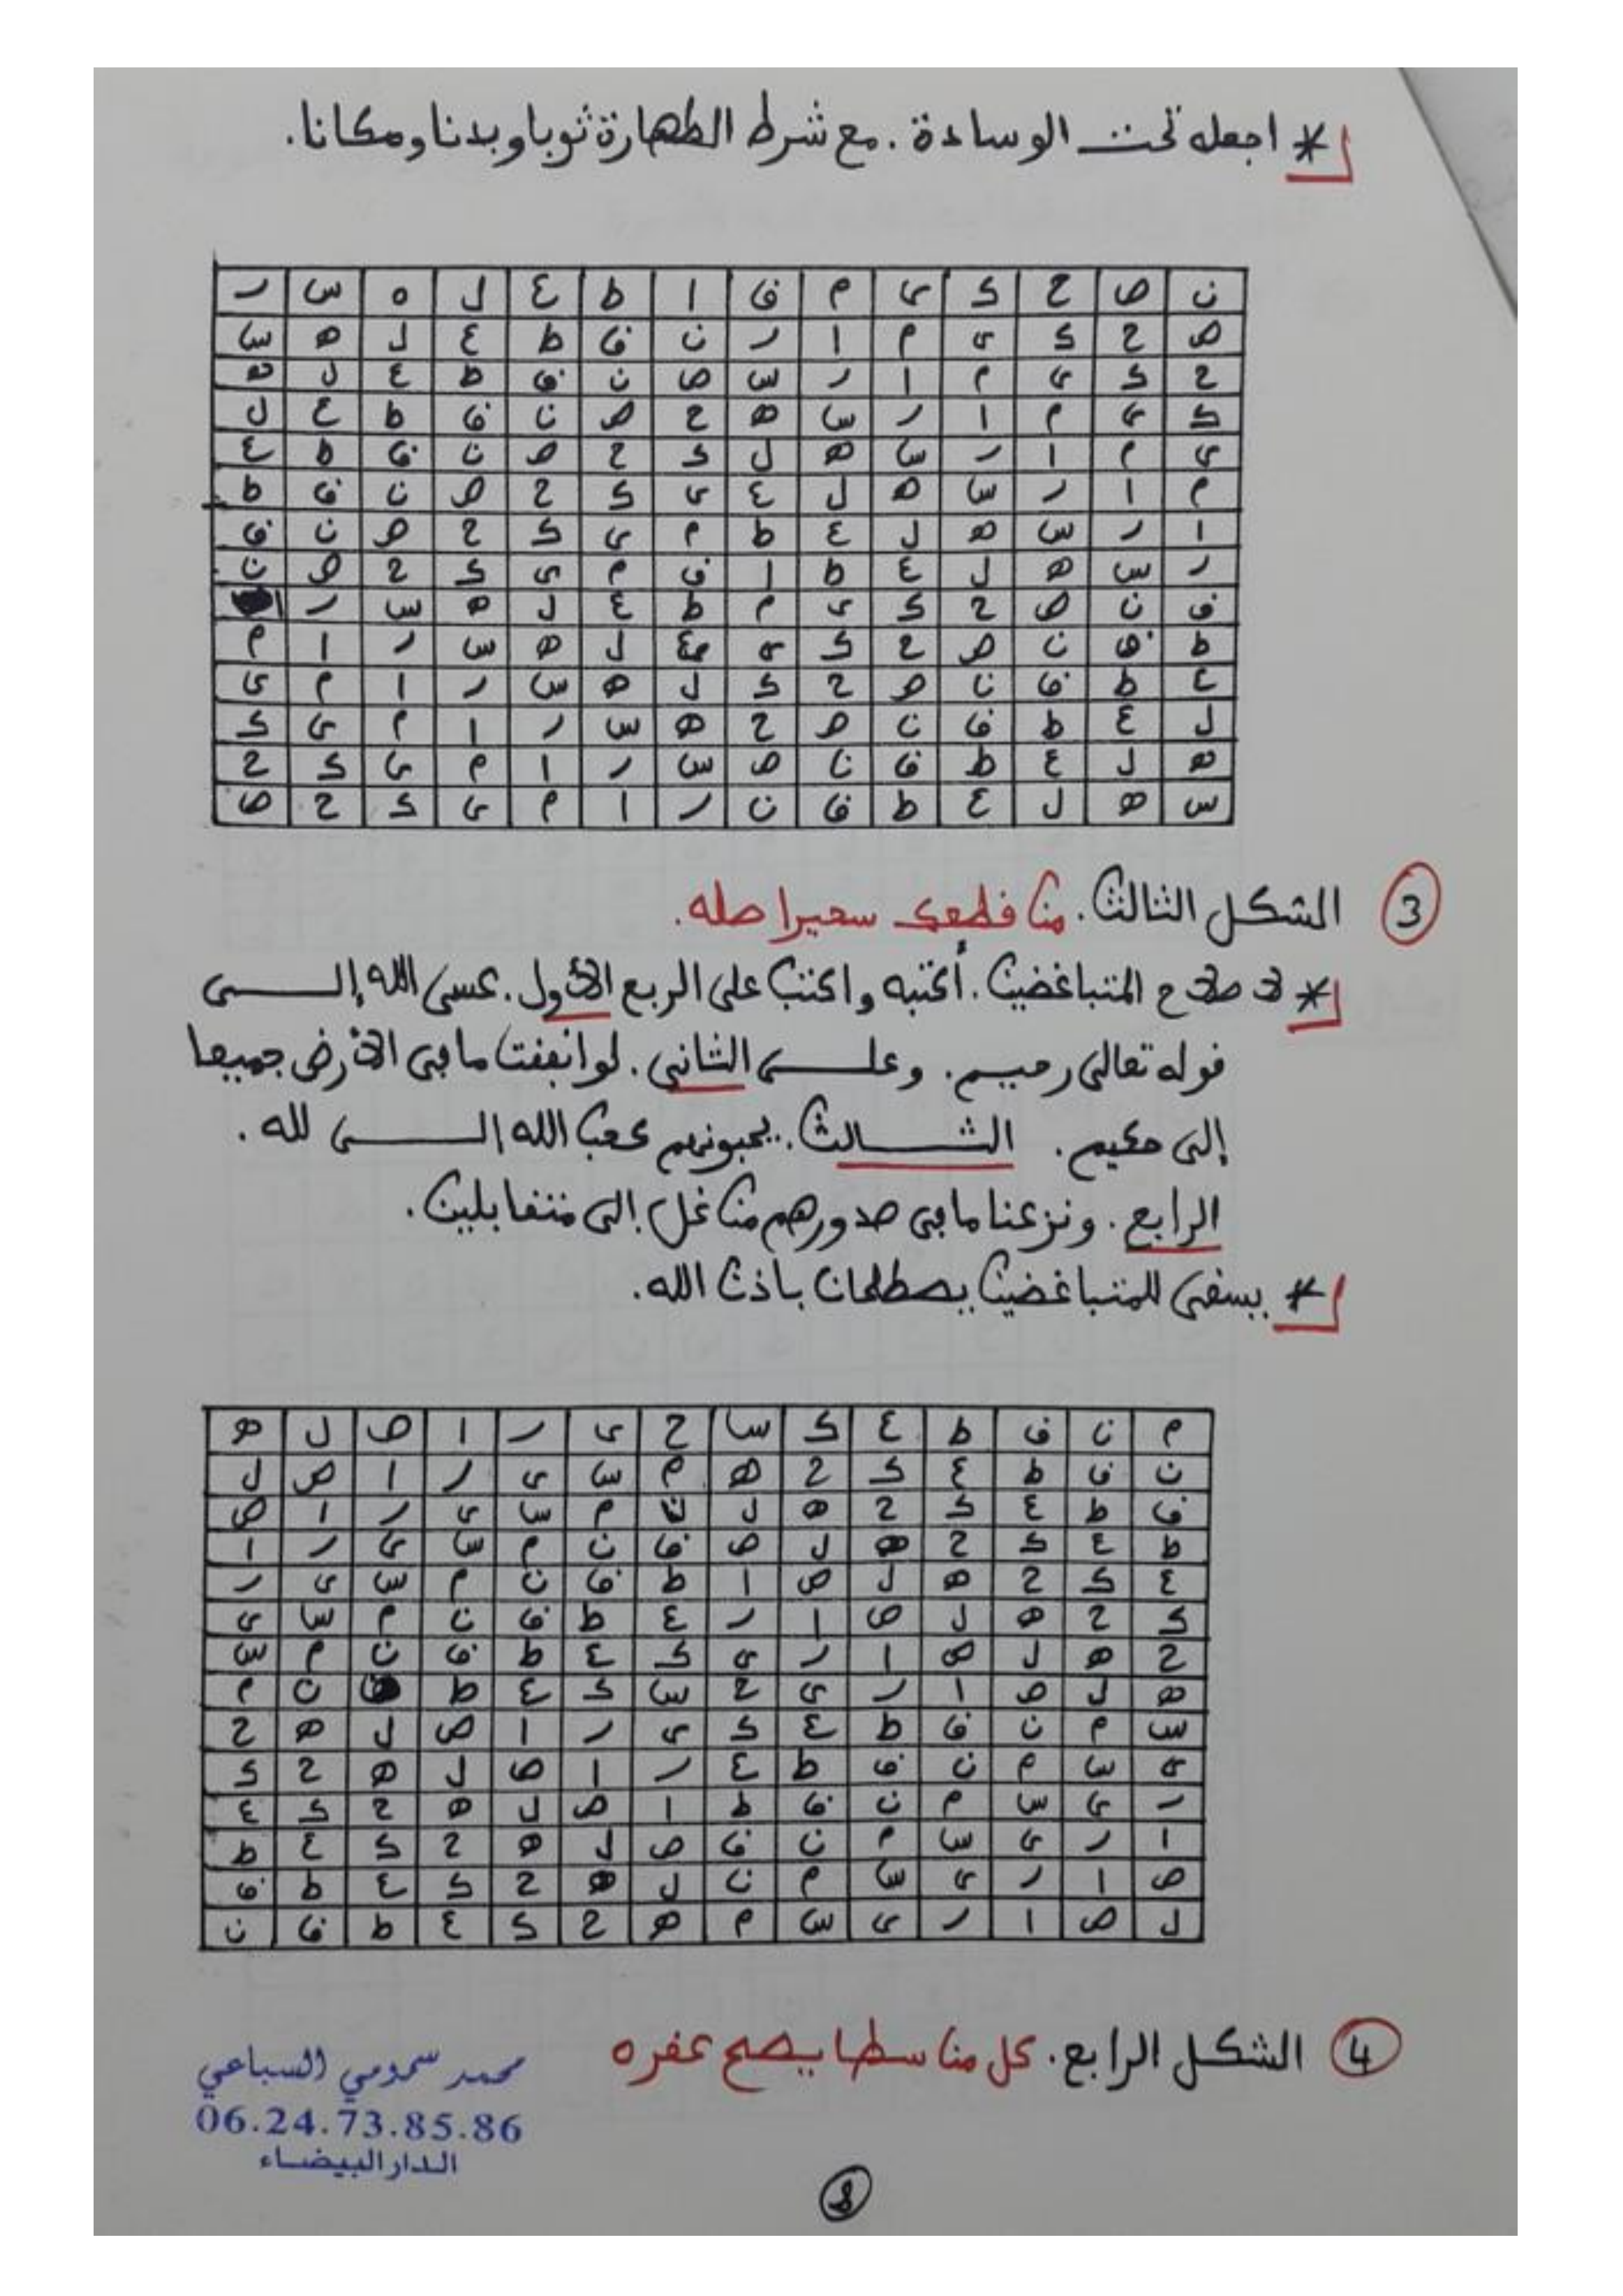 * اجعله تحت الوسادة. مع شرط الطهارة ثوبا وبدنا ومكانا.
ن ص ح ك ى م ق ا ط ع ل ه س ر
ص ح ك ى م ا ر ن ق ط ع ل ه س
ح ك ى م ا ر س ص ن ق ط ع ل ه
ك ى م ا ر س ه ح ص ن ق ط ع ل
ى م ا ر س ه ل ك ح ص ن ق ط ع
م ا ر س ه ل ع ى ك ح ص ن ق ط
ا ر س ه ل ع ط م ى ك ح ص ن ق
ر س ه ل ع ط ا ق م ى ك ح ص ن
ق ن ص ح ك ى م ط ع ل ه س ر ا
ط ق ن ص ح ك ى ع ل ه س ر ا م
ع ط ق ن ص ح ك ل ه س ر ا م ى
ل ع ط ق ن ص ح ه س ر ا م ى ك
ه ل ع ط ق ن ص س ر ا م ى ك ح
س ه ل ع ط ق ن ر ا م ى ك ح ص
3 الشكل الثالث. من قطعك سحيرا صله.
* لاصلاح المتباغضين. أكتبه واكتب على الربع الأول. عسى الله إلى
قوله تعالى رحيم. وعلى الثاني. لو انفقت ما في الأرض جميعا
إلى حكيم. الثالث. يحبونهم كحب الله الى لله.
الرابع. ونزعنا ما في صدورهم من غل إلى متقابلين.
* يسقى للمتباغضين يصطلحان باذن الله.
م ن ق ط ع ك س ح ى ر ا ص ل ه
ن ق ط ع ك ح ه م س ى ر ا ص ل
ق ط ع ك ح ه ل ن م س ى ر ا ص
ط ع ك ح ه ل ص ق ن م س ى ر ا
ع ك ح ه ل ص ا ط ق ن م س ى ر
ك ح ه ل ص ا ر ع ط ق ن م س ى
ح ه ل ص ا ر ى ك ع ط ق ن م س
ه ل ص ا ر ى ح س ك ع ط ق ن م
س م ن ق ط ع ك ى ر ا ص ل ه ح
ى س م ن ق ط ع ر ا ص ل ه ح ك
ر ى س م ن ق ط ا ص ل ه ح ك ع
ا ر ى س م ن ق ص ل ه ح ك ع ط
ص ا ر ى س م ن ل ه ح ك ع ط ق
ل ص ا ر ى س م ه ح ك ع ط ق ن
4 الشكل الرابع. كل من سطا يصح عقره
محمد سمومي السباعي
06.24.73.85.86
الدار البيضاء
8